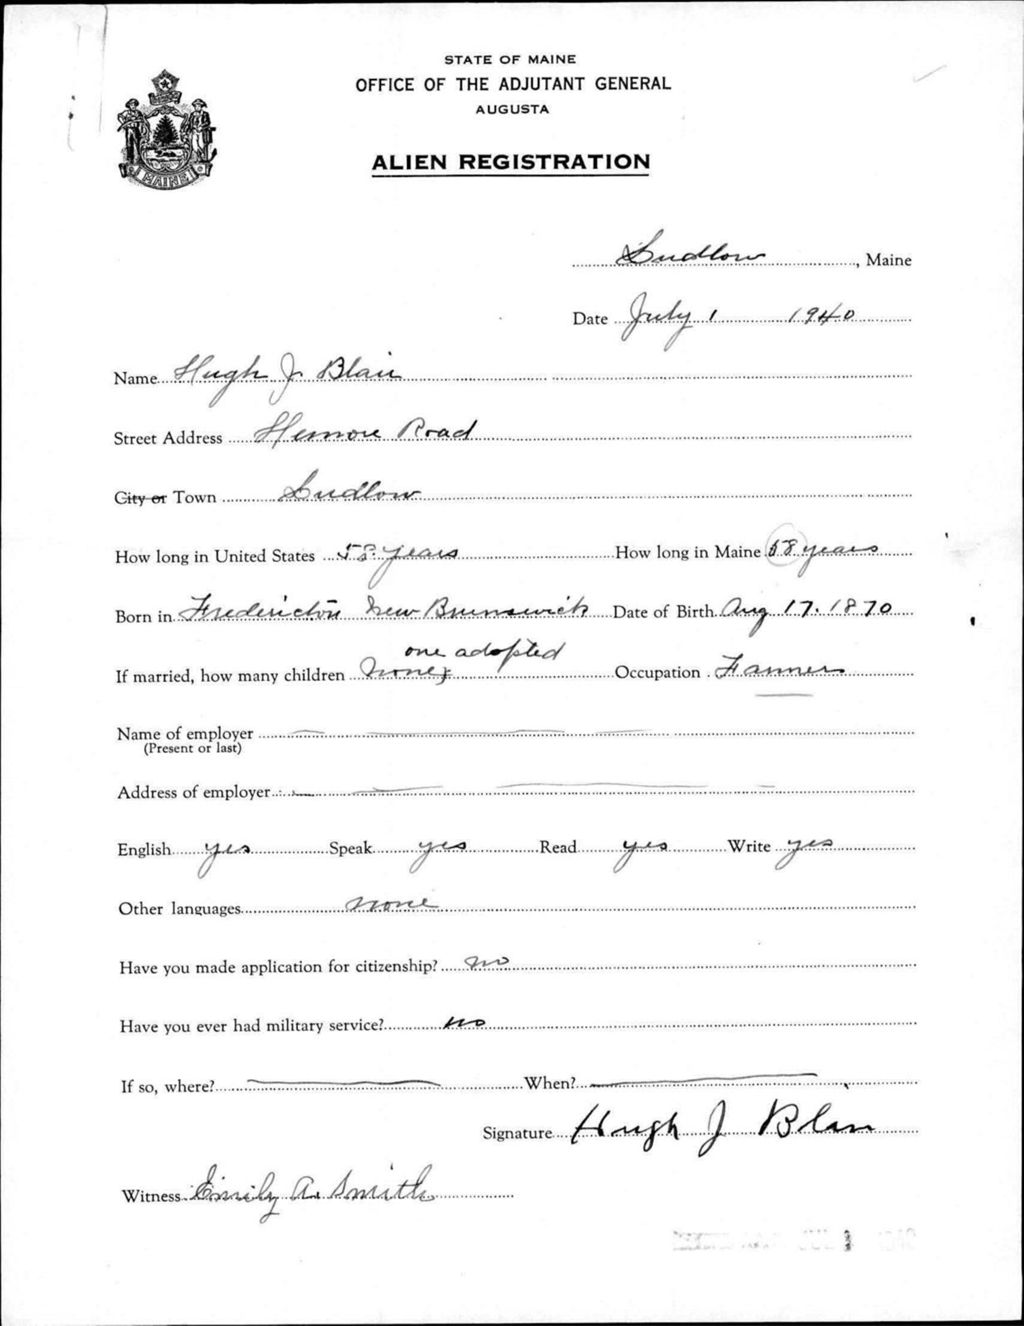 STATE OF MAINE
OFFICE OF THE ADJUTANT GENERAL
AUGUSTA
ALIEN REGISTRATION
MAINE
Ludlow, Maine
Date July 1 1940
Name Hugh J Blair
Street Address Road
City or Town Ludlow
How long in United States 58 years How long in Maine 58 years
Born in Fredericton New Brunswick Date of Birth Aug 17. 1870
one adopted
If married, how many children None Occupation Farmer
Name of employer
(Present or last)
Address of employer
English yes Speak yes Read yes Write yes
Other languages none
Have you made application for citizenship? no
Have you ever had military service? no
If so, where? When?
Signature Hugh J Blair
Witness Emily A. Smith